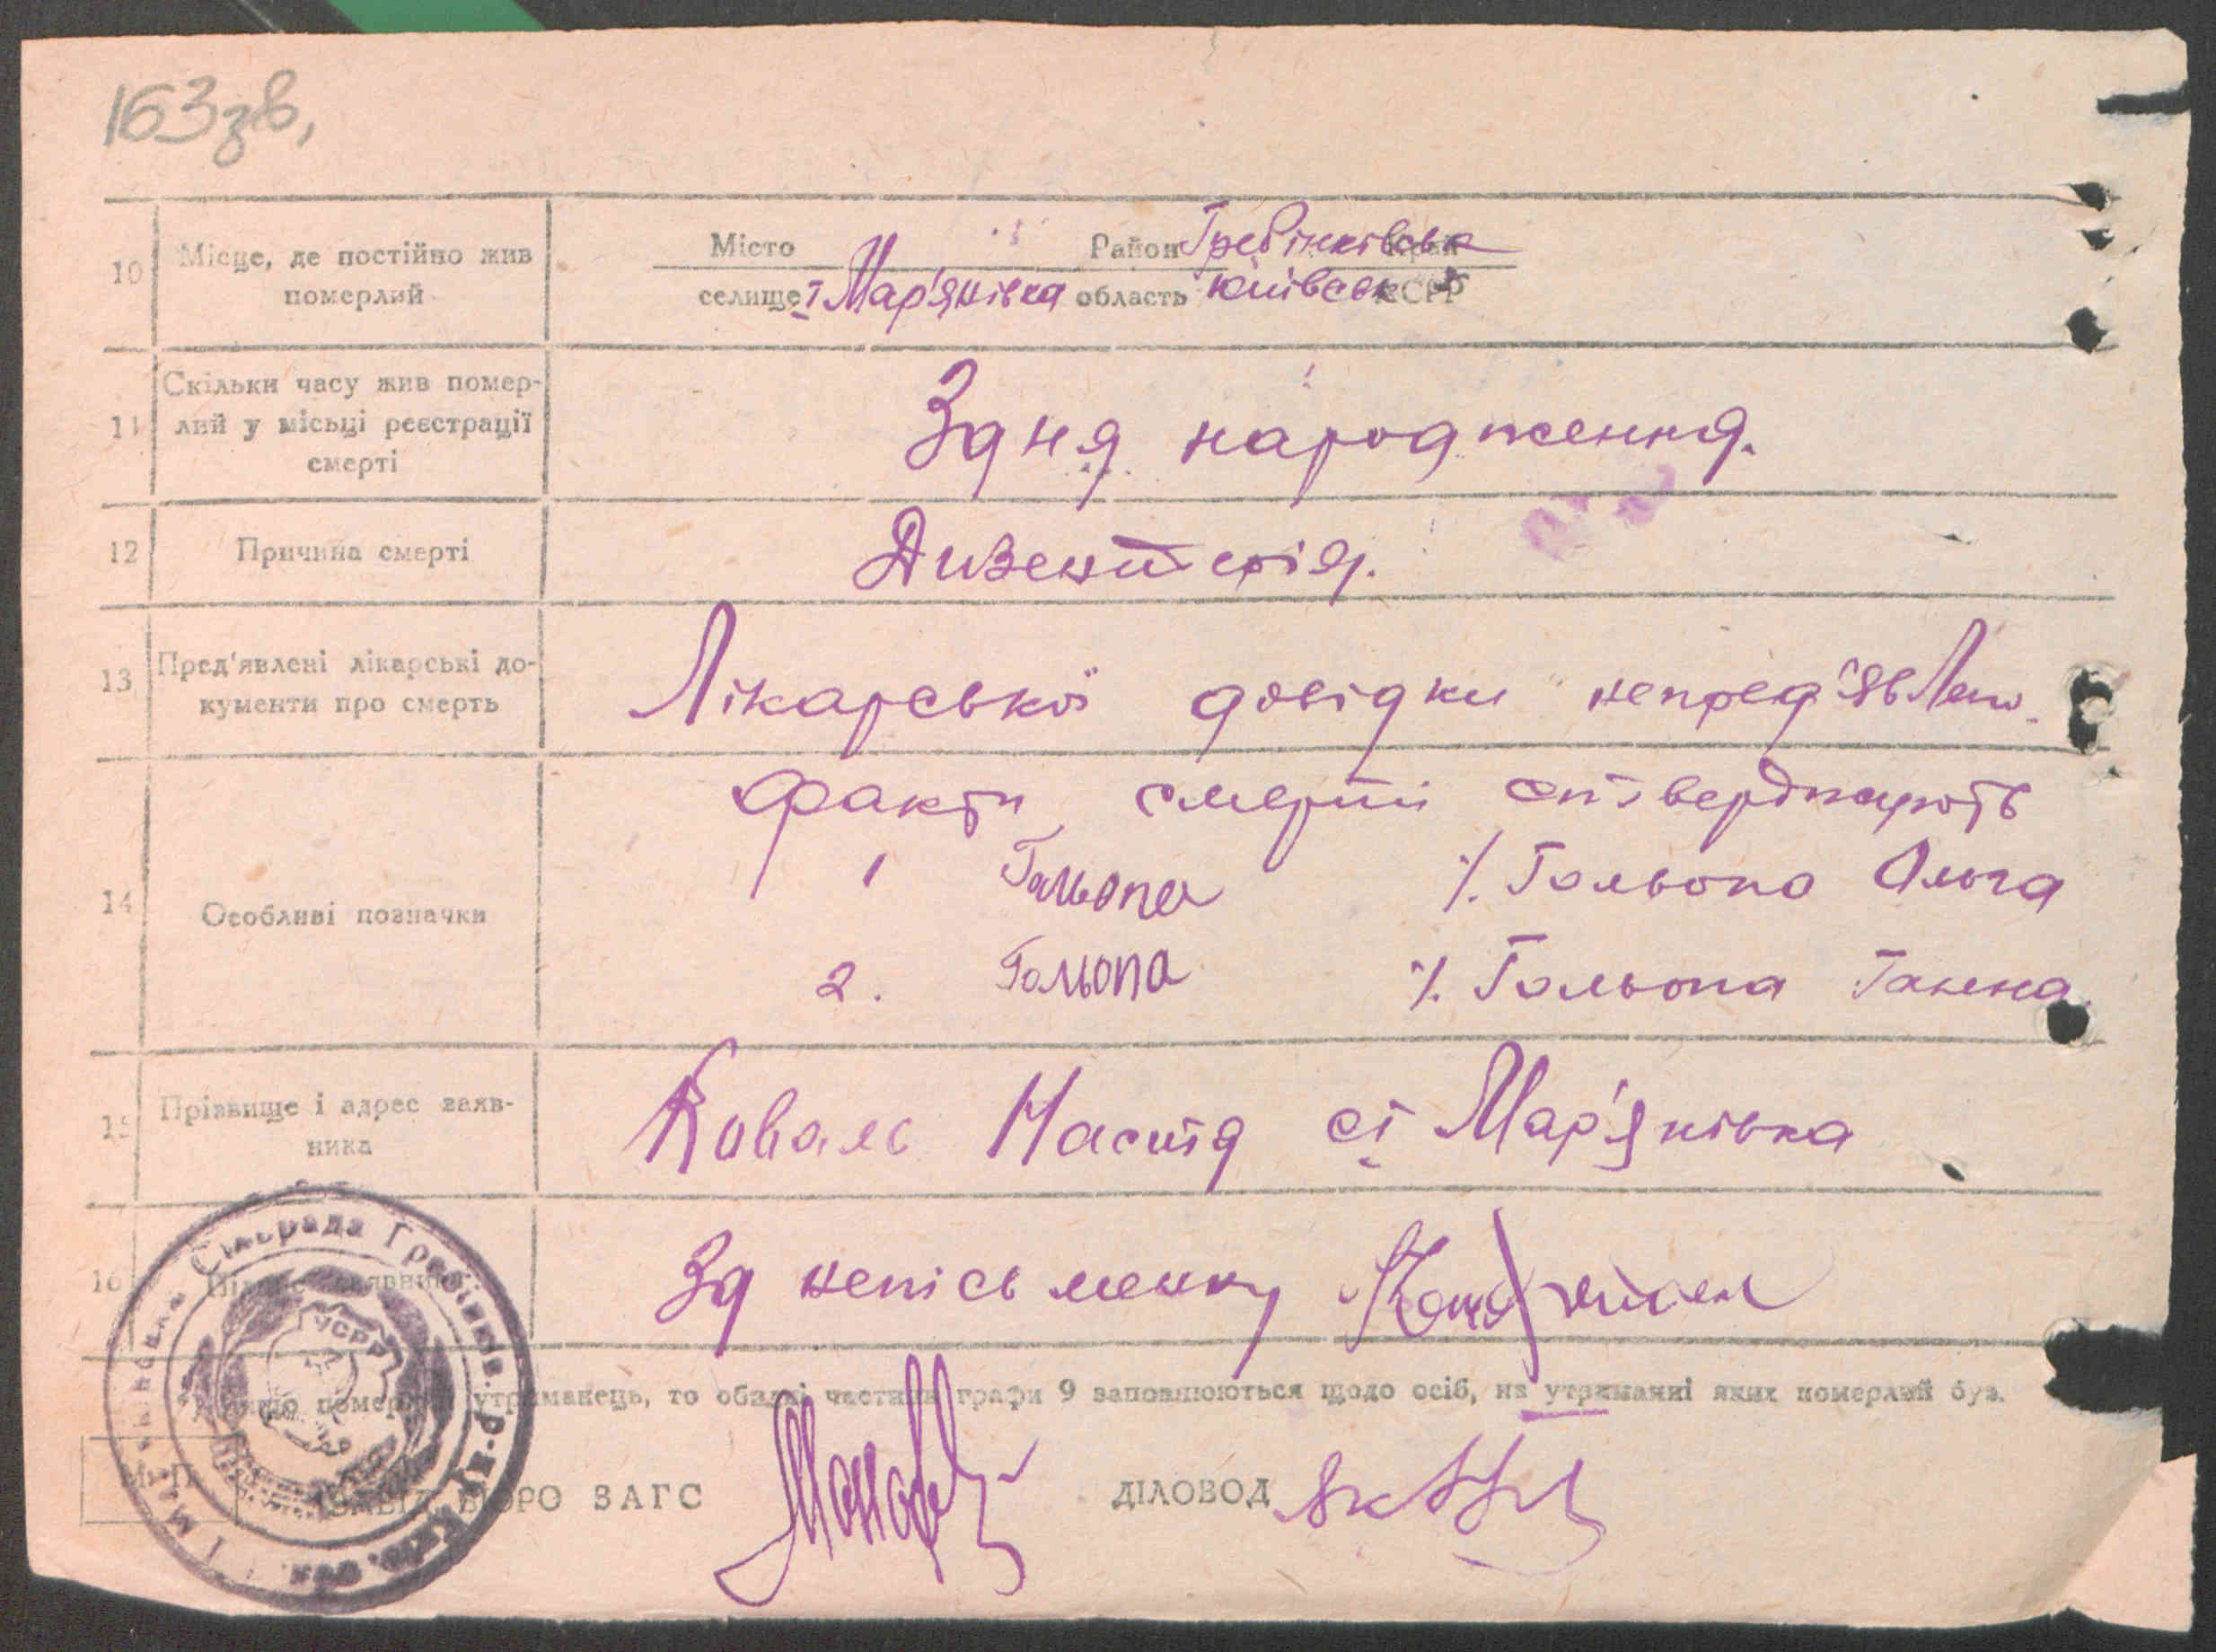 163зв,
10 Місце, де постійно жив померлий
Місто Район Гребінківськ Край
селище І Мар'янівка область Київськ ССРР
11 Скільки часу жив помер-
лий у місьці реєстрації
смерті
Здня народження.
12 Причина смерті
Дизентерія.
13 Пред'явлені лікарські до-
кументи про смерть
Лікарської довідки непред'явлено.
14 Особливі позначки
Факти смерті стверджують
1 Гальопа /. Гальопа Ольга
2. Гальопа /. Гальопа Ганна.
15 Прізвище і адрес заяв-
ника
Коваль Настя с І Мар'янівка
16 Підпис заявника
За непісьменну
утриманець, то обидві частини графи 9 заповнюються щодо осіб, на утриманні яких померлий був.
М. П.
БЮРО ЗАГС ДІЛОВОД
Сільрада Гребінків. р-ну Київ. обл.
УСРР